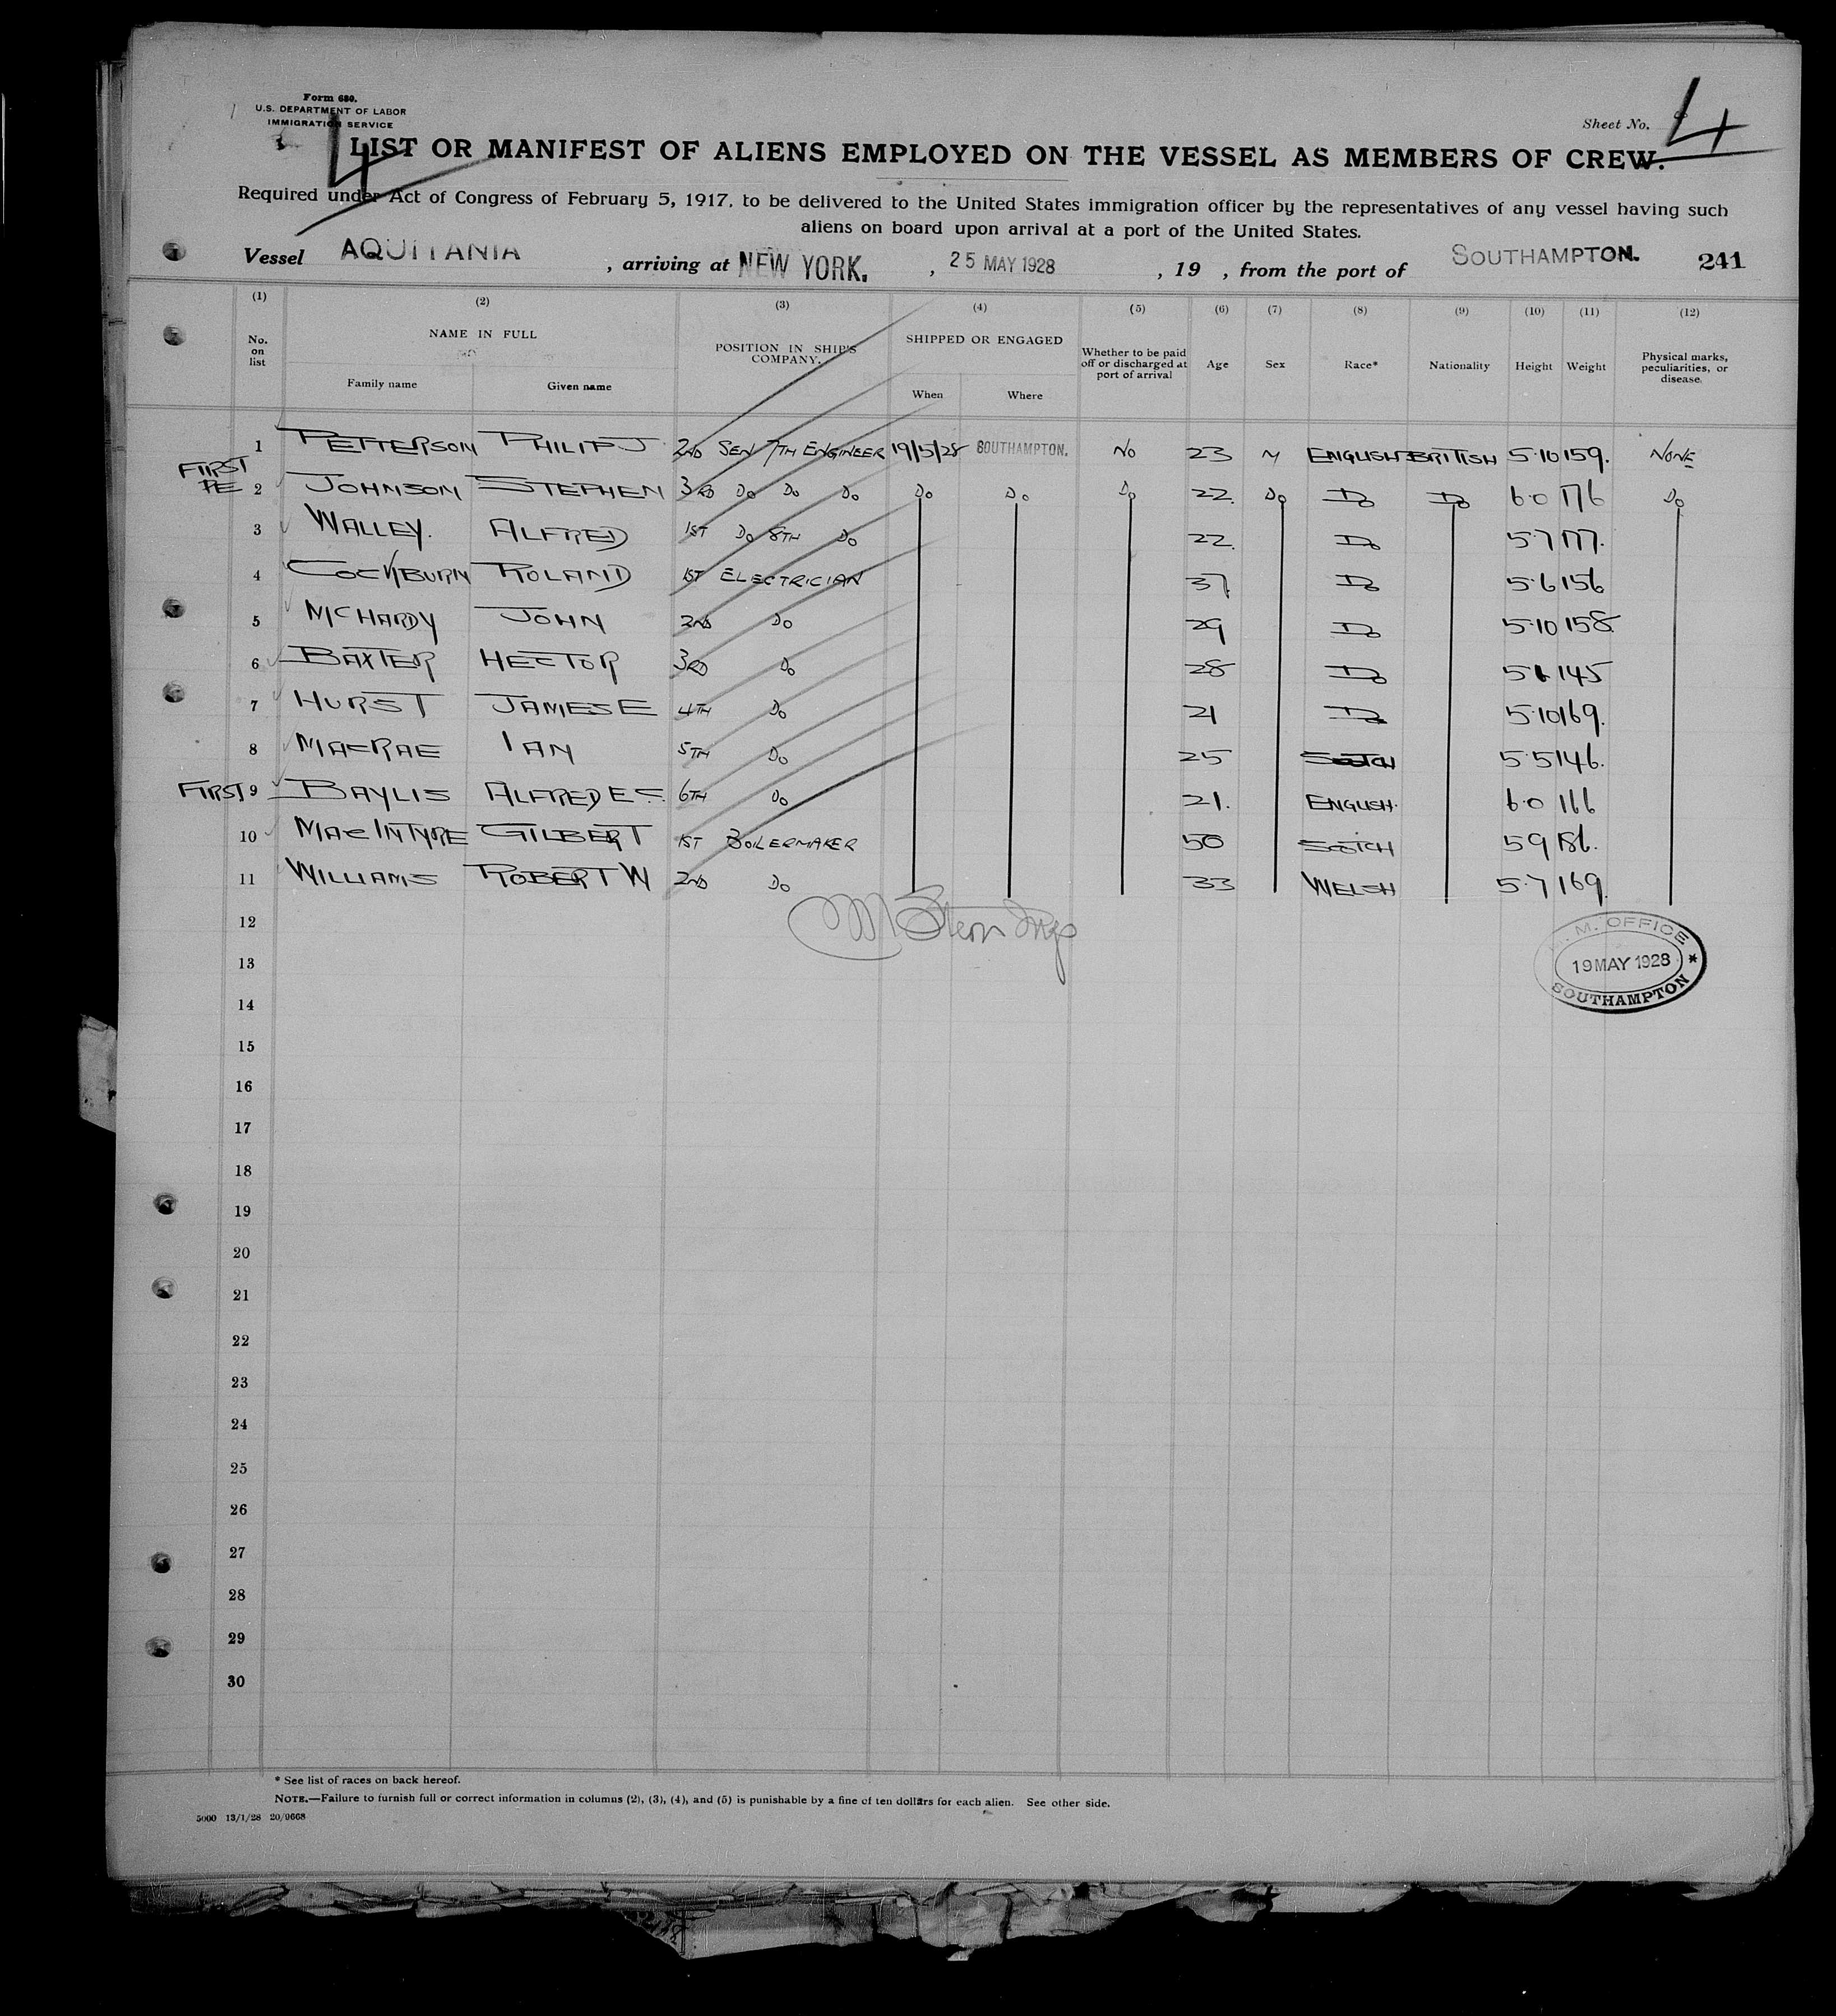 Form 680.
U.S. DEPARTMENT OF LABOR
IMMIGRATION SERVICE
4
Sheet No. 4
LIST OR MANIFEST OF ALIENS EMPLOYED ON THE VESSEL AS MEMBERS OF CREW.
Required under Act of Congress of February 5, 1917, to be delivered to the United States immigration officer by the representatives of any vessel having such
aliens on board upon arrival at a port of the United States.
Vessel AQUITANIA, arriving at NEW YORK., 25 MAY 1928, 19 , from the port of SOUTHAMPTON. 241
(1) (2) (3) (4) (5) (6) (7) (8) (9) (10) (11) (12)
No. on list NAME IN FULL POSITION IN SHIP'S COMPANY. SHIPPED OR ENGAGED Whether to be paid off or discharged at port of arrival Age Sex Race* Nationality Height Weight Physical marks, peculiarities, or disease.
Family name Given name When Where
1 PETTERSON PHILIP J 2ND SEN 7TH ENGINEER 19/5/28 SOUTHAMPTON. NO 23 M ENGLISH BRITISH 5·10 159. NONE
FIRST
PE 2 JOHNSON STEPHEN 3RD DO DO DO DO DO DO 22. DO DO DO 6·0 176 DO
3 WALLEY. ALFRED 1ST DO 8TH DO 22. DO 5·7 177.
4 COCKBURN ROLAND 1ST ELECTRICIAN 37 DO 5·6 156
5 MCHARDY JOHN 2ND DO 29 DO 5·10 158
6 BAXTER HECTOR 3RD DO 28 DO 145
7 HURST JAMES E 4TH DO 21 DO 5·10 169.
8 MACRAE IAN 5TH DO 25 SCOTCH 5·5 146.
FIRST 9 BAYLIS ALFRED E C. 6TH DO 21. ENGLISH. 6·0 166
10 MACINTYRE GILBERT 1ST BOILERMAKER 50 SCOTCH 5 9 186.
11 WILLIAMS ROBERT W 2ND DO 33 WELSH 5·7 169.
12
13
14
15
16
17
18
19
20
21
22
23
24
25
26
27
28
29
30
M. OFFICE
19 MAY 1928 *
SOUTHAMPTON
* See list of races on back hereof.
NOTE.—Failure to furnish full or correct information in columns (2), (3), (4), and (5) is punishable by a fine of ten dollars for each alien. See other side.
5000 13/1/28 20/9668